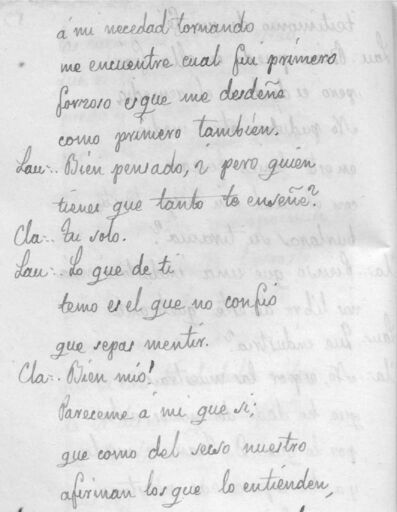 á mi necedad tornando
me encuentre cual fui primero
forzoso es que me desdeñe
como primero tambien.
Lau.. Bien pensado, ¿ pero quien
tienes que tanto te enseñe?
Cla.. Tu solo.
Lau.. Lo que de ti
temo es el que no confio
que sepas mentir.
Cla.. Bien mio!
Pareceme á mi que si;
que como del secso nuestro
afirman los que lo entienden,